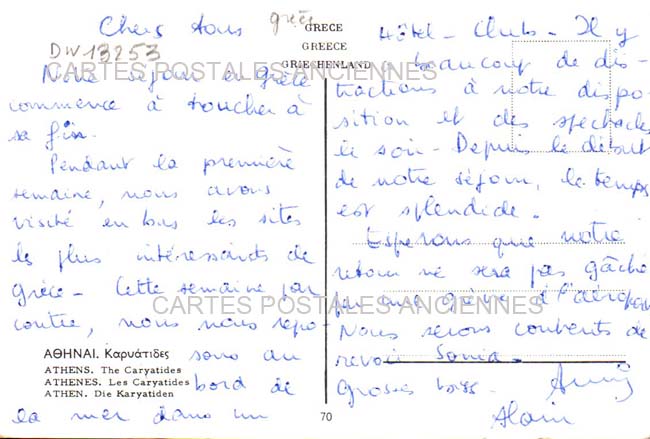 Chers tous
grèce
DW13253
Notre séjour en Grèce
commence à toucher à
sa fin.
Pendant la première
semaine, nous avons
visité en bus les sites
les plus intéressants de
Grèce - Cette semaine par
contre, nous nous repo-
sons au
bord de
la mer dans un
GRÈCE
GREECE
GRIECHENLAND
CARTES POSTALES ANCIENNES
CARTES POSTALES ANCIENNES
ΑΘΗΝΑΙ. Καρυάτιδες
ATHENS. The Caryatides
ATHENES. Les Caryatides
ATHEN. Die Karyatiden
70
Hôtel - Club - Il y
a beaucoup de dis-
tractions à notre dispo-
sition et des spectacles
le soir - Depuis le début
de notre séjour, le temps
est splendide.
Espérons que notre
retour ne sera pas gâché
par une grève à l'aéroport
Nous serons contents de
revoir Sonia -
Grosses bises -
Alain